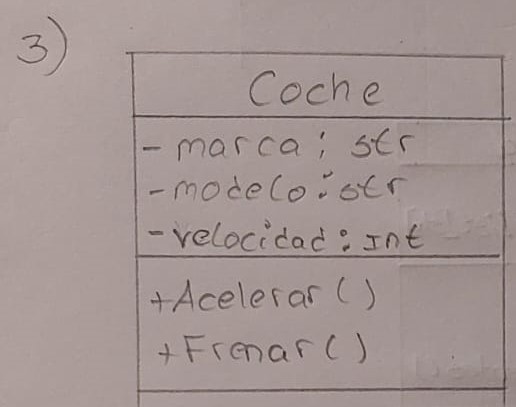 3)
Coche
- marca: str
- modelo: str
- velocidad: Int
+Acelerar()
+Frenar()